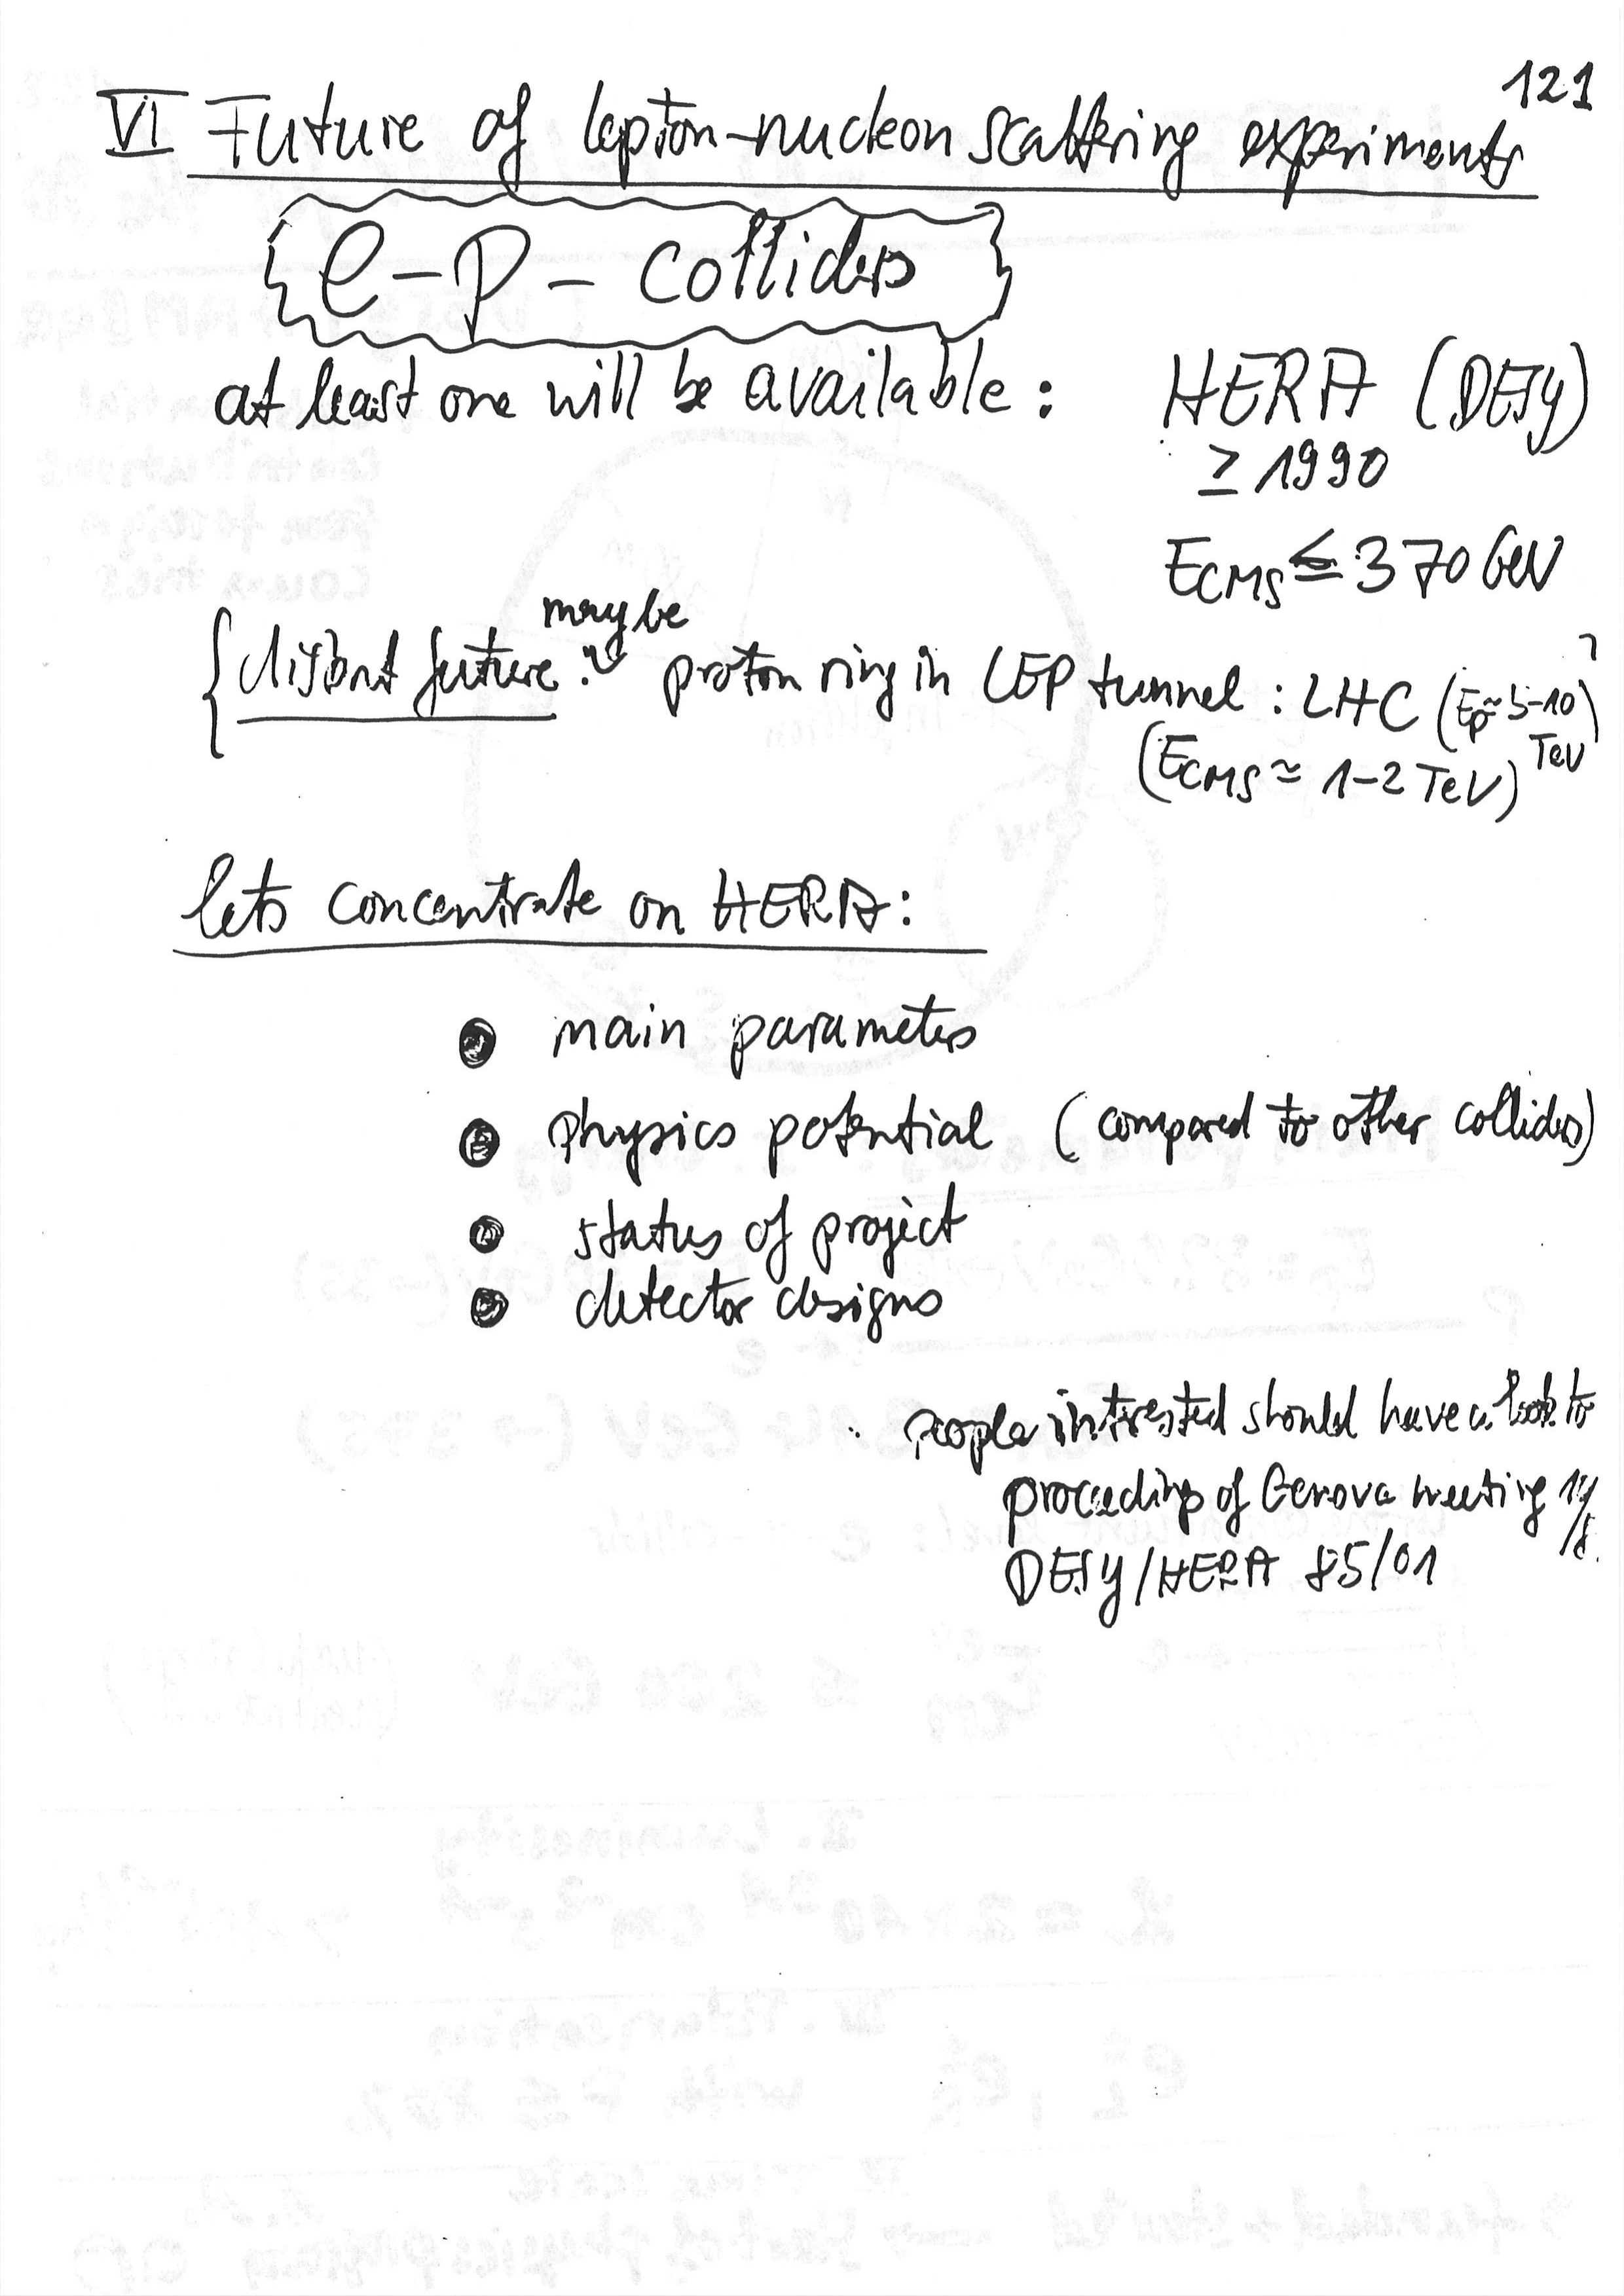 121
VI Future of lepton-nucleon scattering experiments
e-p-colliders
at least one will be available: HERA (DESY)
≥ 1990
E_CMS ≤ 370 GeV
maybe
distant future: proton ring in LEP tunnel: LHC (Ep ≈ 5-10 TeV)
(E_CMS ≃ 1-2 TeV)
lets concentrate on HERA:
● main parameters
● physics potential (compared to other colliders)
● status of project
● detector designs
people intrested should have a look to
proceedings of Genova meeting
DESY/HERA 85/01